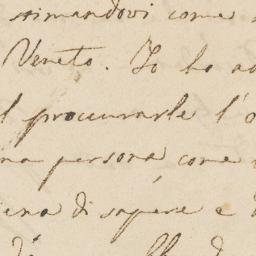 stimandovi come
Veneto. Io ho a
l procurarle l'o
na persona come
ena di sapere e d